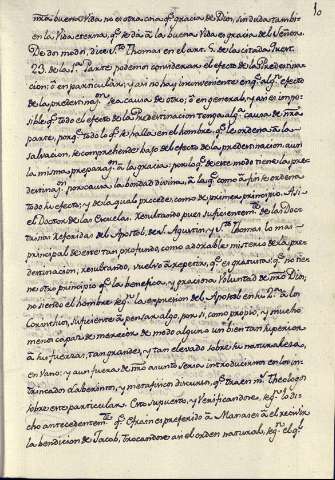 10
mâ buena Vida, no es otra cosa q̃ gracia de Dios, sin duda tambi-
en la Vida eterna, q̃ se dà à la buena Vida es gracia del Señor.
De dos modos, dice S.to Thomas en el art. 5. de la citada Quest.
23. de la 1.a Parte podemos considerar el efecto de la Predestina
cion: ô en particular, y asi no hay inconveniente en q̃ algn efecto
de la predestinan. sea causa de otro; ô en general, y asi es impo-
sible q̃ todo el efecto de la Predestinacion tenga algã causa de nrã
parte, porq̃ todo lo q̃ se halla en el hombre, q̃ le ordena â la
salvacion, se comprehende baxo del efecto de la predestinacion, aun
la misma preparan. â la gracia: por lo q̃ de este modo tiene la pre-
destinan. por causa la bondad divina, â la q̃ como â fin se ordena
todo su efecto; y de la qual procede, como de primer principio. Asi
el Doctor de las Escuelas. Resultando pues suficientemte de las Doc-
trinas referidas del Apostol, de S. Agustin, y S.to Thomas lo mas
principal de este tan profundo, como adorable misterio de la pre-
destinacion, resultando, vuelvo â repetir, q̃ es gratuita: q̃ no tie-
ne otro principio q̃ la benefica, y graciosa Voluntad de nrô Dios;
no siendo el hombre segn la expresion del Apostol en su 2.a â los
Corintios, suficiente â pensar algo, por si, como propio, y mucho
menos capaz de merecer de modo alguno un bien tan superior
â sus fuerzas, tan grande, y tan elevado sobre su naturaleza,
en vano; y aun fuera de nrô asunto seria introducirnos en los in-
trincados laberintos, y metafisicos discursos, q̃ traen ms Theologos
sobre este particular. Esto supuesto, y Verificandose, segn lo di-
cho antecedentemte q̃ Efrain es preferido â Manases en el recivir
la bendicion de Jacob, trocandose en el orden natural, segn el q̃l